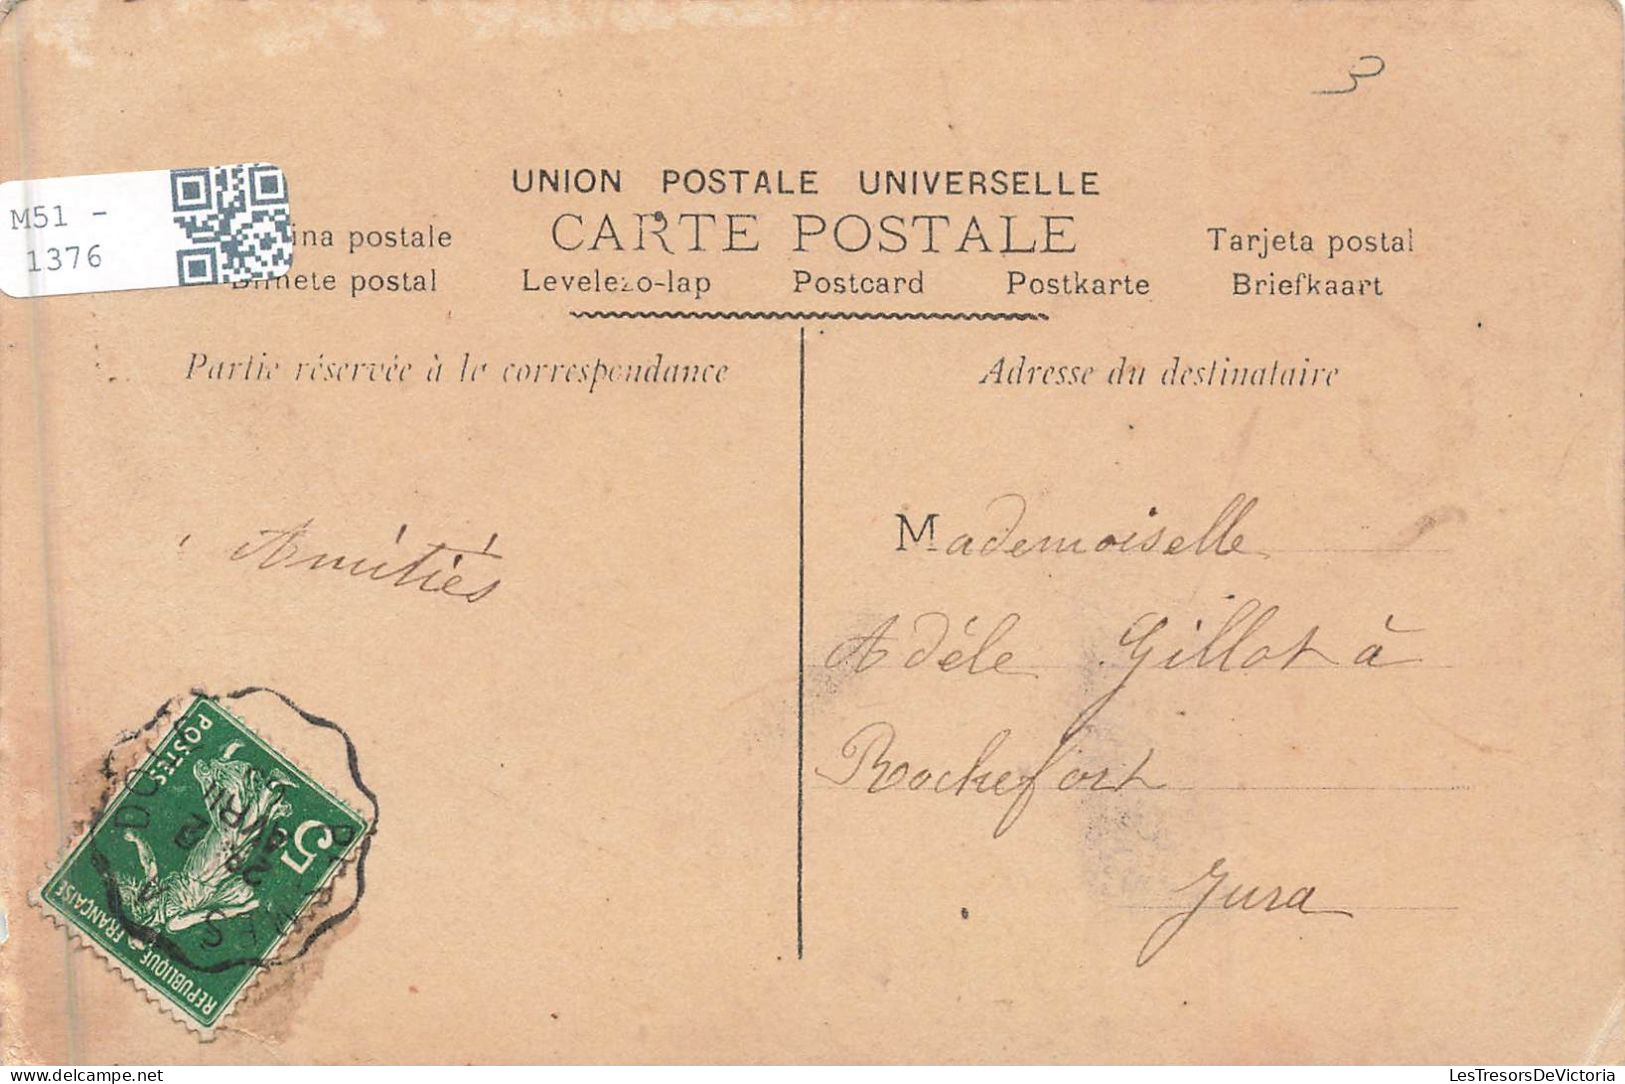 M51 -
1376
UNION POSTALE UNIVERSELLE
CARTE POSTALE
postale
Tarjeta postal
postal
Levelezo-lap
Postcard
Postkarte
Briefkaart
Partie réservée à la correspondance
Adresse du destinataire
Amitiés
Mademoiselle
Adèle Gillot à
Rochefort
Jura
POSTES
5
REPUBLIQUE FRANÇAISE
AVRIL
LesTresorsDeVictoria
delcampe.net